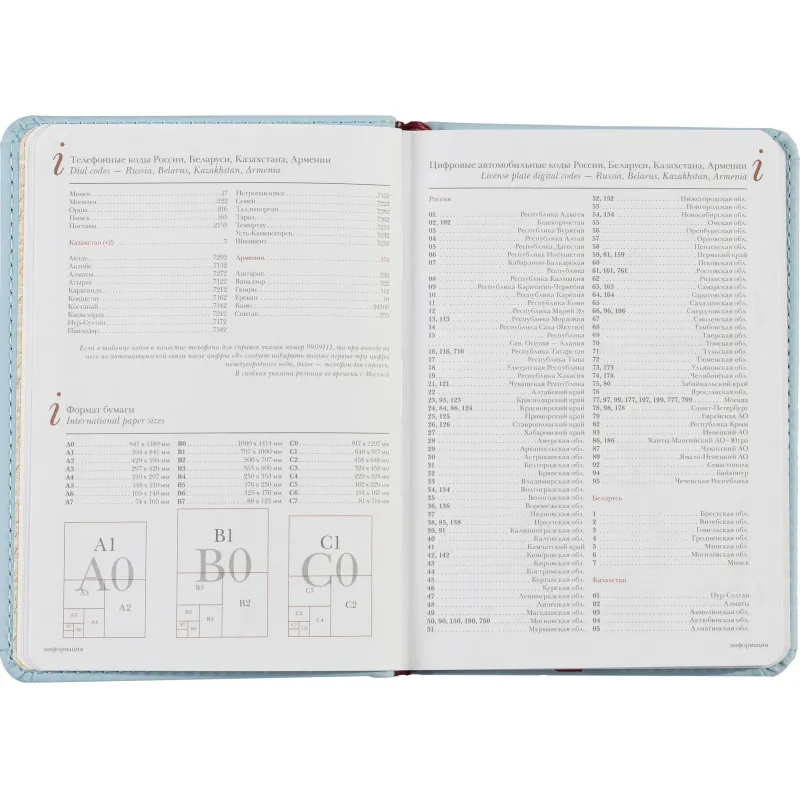 Телефонные коды России, Беларуси, Казахстана, Армении
Dial codes — Russia, Belarus, Kazakhstan, Armenia
Минск 17
Могилев 222
Орша 216
Пинск 165
Поставы 2155
Казахстан (+2) 7
Актау 7292
Актобе 7132
Алматы 7272
Атырау 7122
Караганда 7212
Кокшетау 7162
Костанай 7142
Кызылорда 7242
Нур-Султан 7172
Павлодар 7182
Петропавловск 7152
Семей 7222
Талдыкорган 7282
Тараз 7262
Темиртау 7213
Усть-Каменогорск 7232
Шымкент 7252
Армения 374
Аштарак 232
Ванадзор 322
Гюмри 312
Ереван 10
Камо
Спитак 255
Если в таблице кодов в качестве телефона для справок указан номер 9909111, то при выходе на
него по автоматической связи после цифры «8» следует набирать только первые три цифры
междугороднего кода, далее — телефон для справок.
В скобках указана разница во времени с Москвой
Формат бумаги
International paper sizes
A0 841 x 1189 мм
A1 594 x 841 мм
A2 420 x 594 мм
A3 297 x 420 мм
A4 210 x 297 мм
A5 148 x 210 мм
A6 105 x 148 мм
A7 74 x 105 мм
B0 1000 x 1414 мм
B1 707 x 1000 мм
B2 500 x 707 мм
B3 353 x 500 мм
B4 250 x 353 мм
B5 176 x 250 мм
B6 125 x 176 мм
B7 88 x 125 мм
C0 917 x 1297 мм
C1 648 x 917 мм
C2 458 x 648 мм
C3 324 x 458 мм
C4 229 x 324 мм
C5 162 x 229 мм
C6 114 x 162 мм
C7 81 x 114 мм
A1
A0
A3
A2
A5
A4
B1
B0
B3
B2
B5
B4
C1
C0
C3
C2
C5
C4
информация
Цифровые автомобильные коды России, Беларуси, Казахстана, Армении
License plate digital codes — Russia, Belarus, Kazakhstan, Armenia
Россия
01 Республика Адыгея
02, 102 Башкортостан
03 Республика Бурятия
04 Республика Алтай
05 Республика Дагестан
06 Республика Ингушетия
07 Кабардино-Балкарская
Республика
08 Республика Калмыкия
09 Республика Карачаево-Черкесия
10 Республика Карелия
11 Республика Коми
12 Республика Марий Эл
13, 113 Республика Мордовия
14 Республика Саха (Якутия)
15 Республика
Сев. Осетия — Алания
16, 116, 716 Республика Татарстан
17 Республика Тыва
18 Удмуртская Республика
19 Республика Хакасия
21, 121 Чувашская Республика
22 Алтайский край
23, 93, 123 Краснодарский край
24, 84, 88, 124 Красноярский край
25, 125 Приморский край
26, 126 Ставропольский край
27 Хабаровский край
28 Амурская обл.
29 Архангельская обл.
30 Астраханская обл.
31 Белгородская обл.
32 Брянская обл.
33 Владимирская обл.
34, 134 Волгоградская обл.
35 Вологодская обл.
36, 136 Воронежская обл.
37 Ивановская обл.
38, 85, 138 Иркутская обл.
39, 91 Калининградская обл.
40 Калужская обл.
41 Камчатский край
42, 142 Кемеровская обл.
43 Кировская обл.
44 Костромская обл.
45 Курганская обл.
46 Курская обл.
47 Ленинградская обл.
48 Липецкая обл.
49 Магаданская обл.
50, 90, 150, 190, 750 Московская обл.
51 Мурманская обл.
52, 152 Нижегородская обл.
53 Новгородская обл.
54, 154 Новосибирская обл.
55 Омская обл.
56 Оренбургская обл.
57 Орловская обл.
58 Пензенская обл.
59, 81, 159 Пермский край
60 Псковская обл.
61, 161, 761 Ростовская обл.
62 Рязанская обл.
63, 163 Самарская обл.
64, 164 Саратовская обл.
65 Сахалинская обл.
66, 96, 196 Свердловская обл.
67 Смоленская обл.
68 Тамбовская обл.
69 Тверская обл.
70 Томская обл.
71 Тульская обл.
72 Тюменская обл.
73, 173 Ульяновская обл.
74, 174 Челябинская обл.
75, 80 Забайкальский край
76 Ярославская обл.
77, 97, 99, 177, 197, 199, 777, 799 Москва
78, 98, 178 Санкт-Петербург
79 Еврейская АО
82 Республика Крым
83 Ненецкий АО
86, 186 Ханты-Мансийский АО - Югра
87 Чукотский АО
89 Ямало-Ненецкий АО
92 Севастополь
94 Байконур
95 Чеченская Республика
Беларусь
1 Брестская обл.
2 Витебская обл.
3 Гомельская обл.
4 Гродненская обл.
5 Минская обл.
6 Могилёвская обл.
7 Минск
Казахстан
01 Нур-Султан
02 Алматы
03 Акмолинская обл.
04 Актюбинская обл.
05 Алматинская обл.
информация